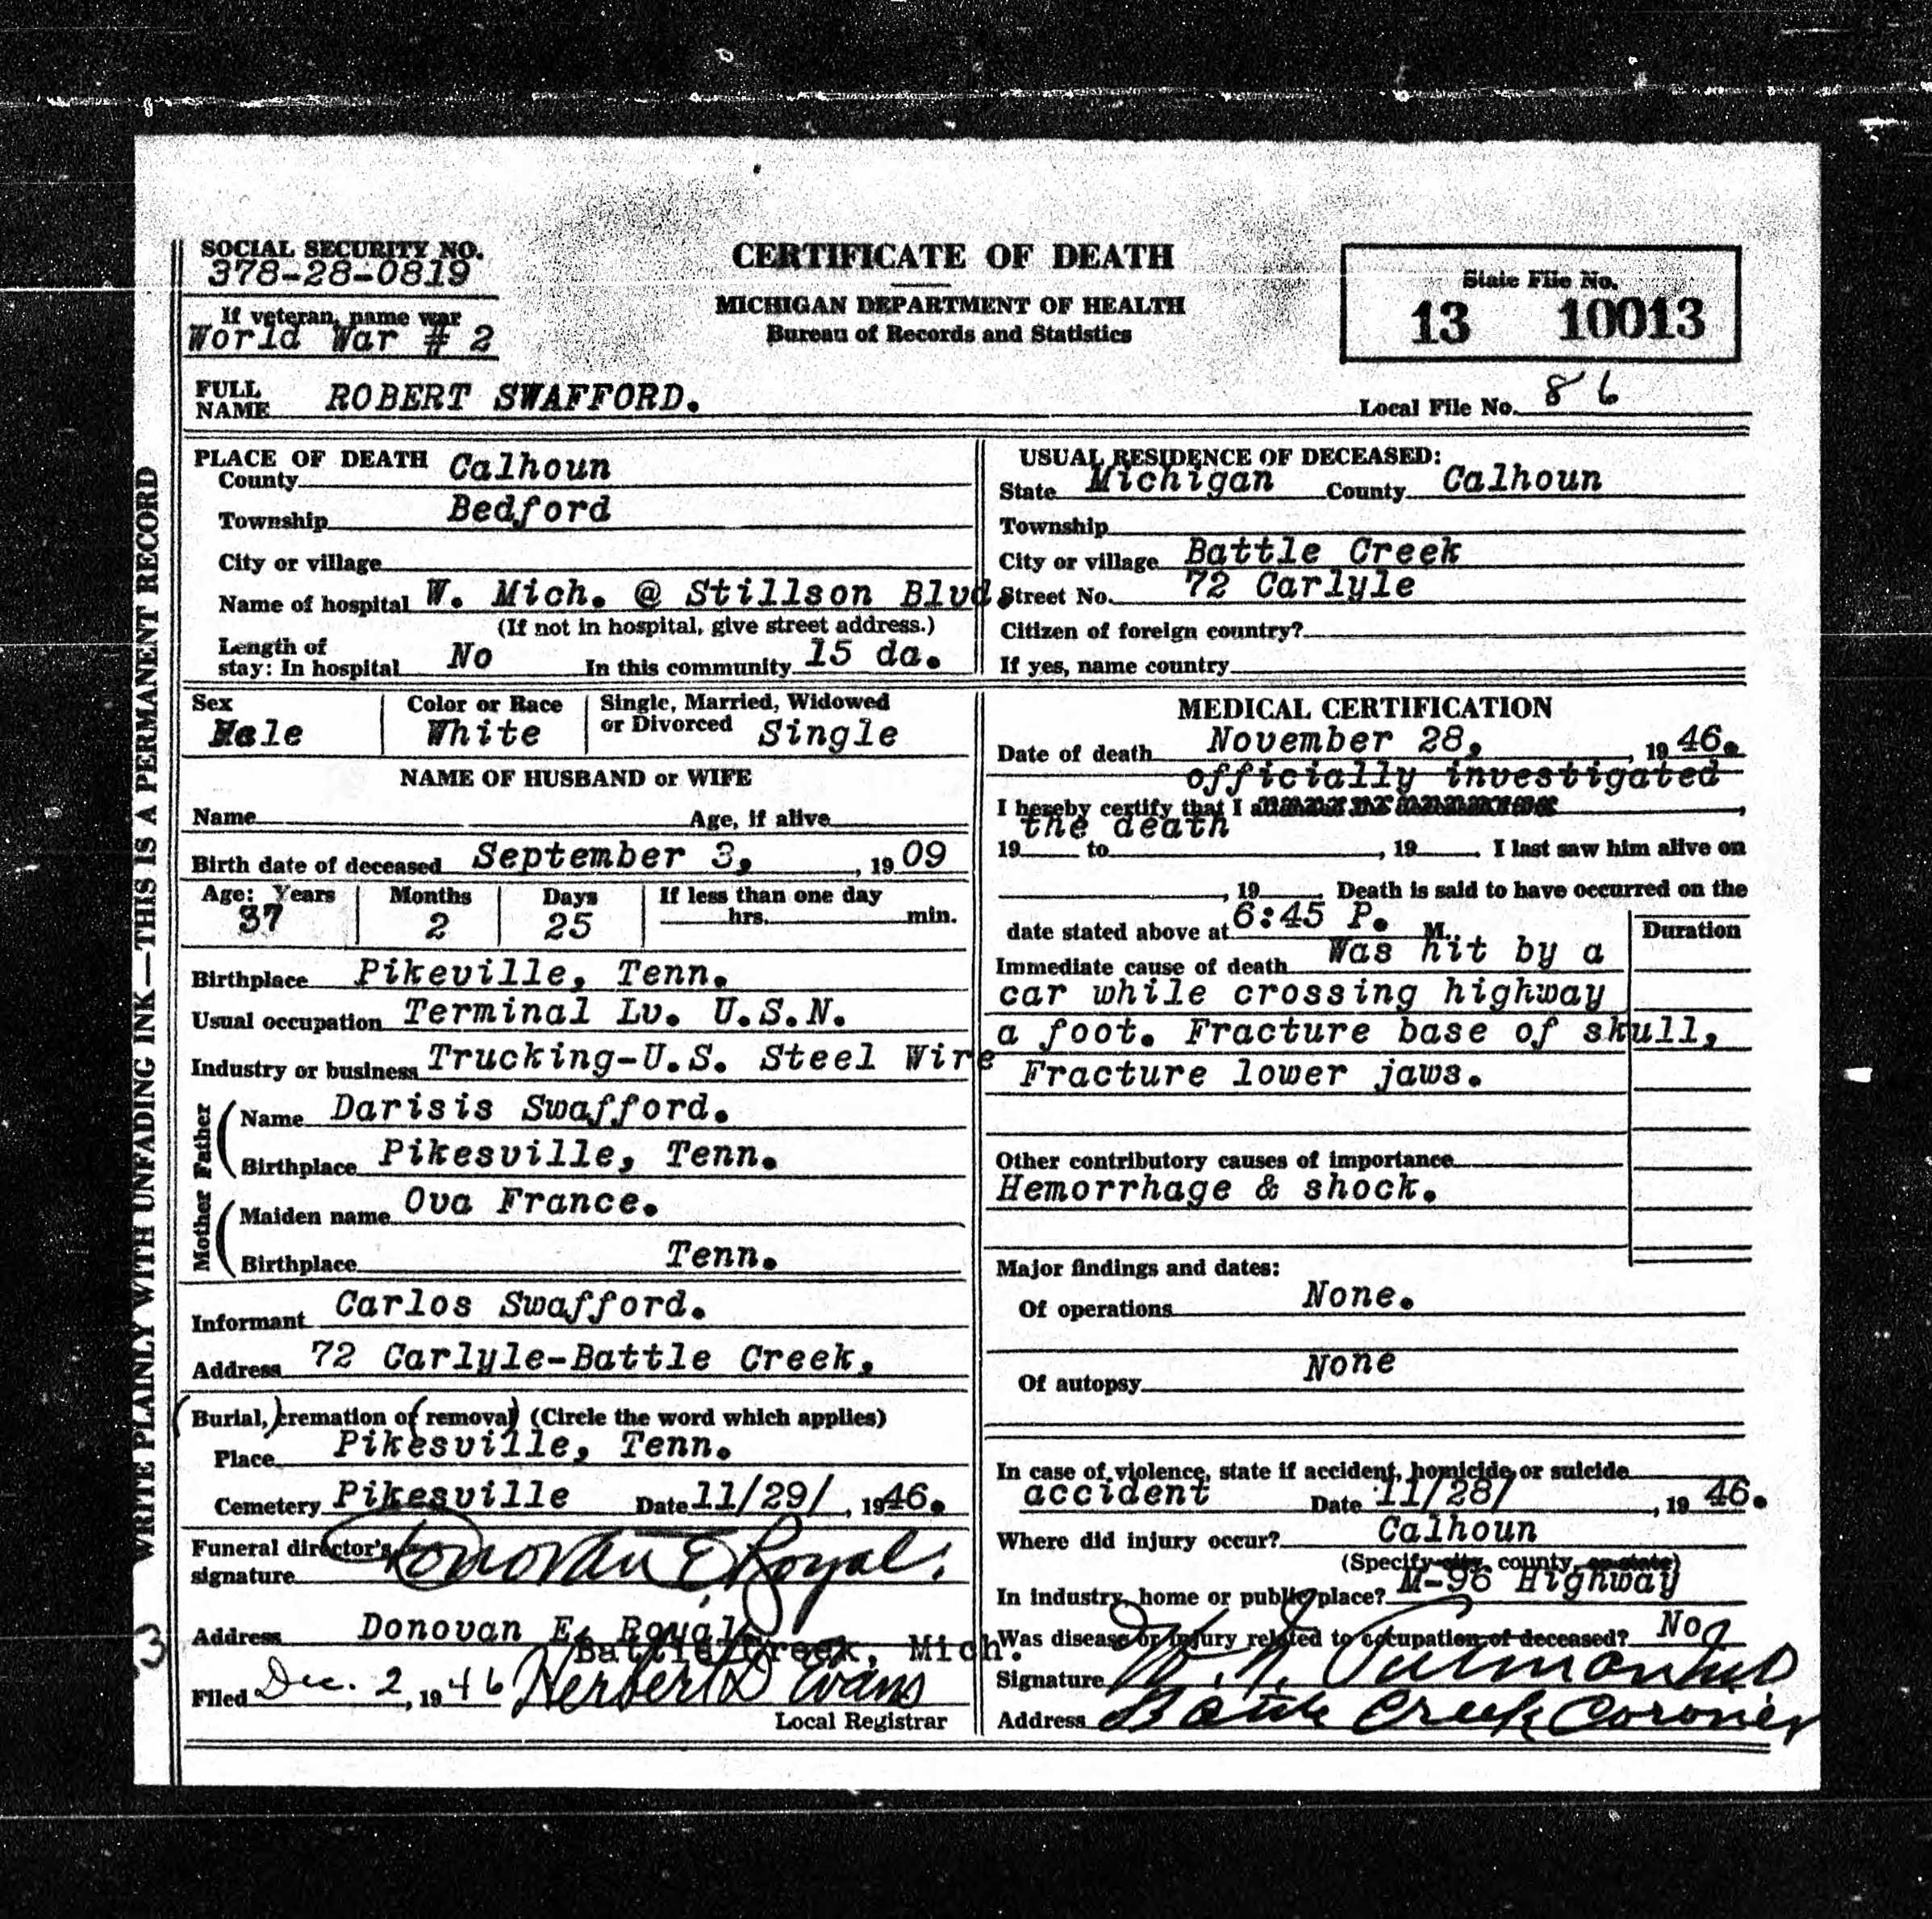 SOCIAL SECURITY NO.
378-28-0819
If veteran, name war
World War # 2
CERTIFICATE OF DEATH
MICHIGAN DEPARTMENT OF HEALTH
Bureau of Records and Statistics
State File No.
13 10013
FULL NAME ROBERT SWAFFORD.
Local File No. 86
WRITE PLAINLY WITH UNFADING INK—THIS IS A PERMANENT RECORD
PLACE OF DEATH
County Calhoun
Township Bedford
City or village
Name of hospital W. Mich. @ Stillson Blvd.
(If not in hospital, give street address.)
Length of stay: In hospital No In this community 15 da.
USUAL RESIDENCE OF DECEASED:
State Michigan County Calhoun
Township
City or village Battle Creek
Street No. 72 Carlyle
Citizen of foreign country?
If yes, name country
Sex Male
Color or Race White
Single, Married, Widowed or Divorced Single
NAME OF HUSBAND or WIFE
Name Age, if alive
Birth date of deceased September 3, , 19 09
Age: Years 37 Months 2 Days 25 If less than one day hrs. min.
Birthplace Pikeville, Tenn.
Usual occupation Terminal Lv. U.S.N.
Industry or business Trucking-U.S. Steel Wire
Father
Name Darisis Swafford.
Birthplace Pikesville, Tenn.
Mother
Maiden name Ova France.
Birthplace Tenn.
Informant Carlos Swafford.
Address 72 Carlyle-Battle Creek.
(Burial,) cremation or (removal) (Circle the word which applies)
Place Pikesville, Tenn.
Cemetery Pikesville Date 11/29/ , 1946.
Funeral director's signature Donovan E Royal.
Address Donovan E. Royal
Battle Creek, Mich.
Filed Dec. 2, 1946 Herbert D Evans
Local Registrar
3
MEDICAL CERTIFICATION
Date of death November 28, , 19 46.
officially investigated
I hereby certify that I
the death
19 to , 19 . I last saw him alive on
, 19 . Death is said to have occurred on the
date stated above at 6:45 P. M.
Duration
Immediate cause of death Was hit by a
car while crossing highway
a foot. Fracture base of skull,
Fracture lower jaws.
Other contributory causes of importance
Hemorrhage & shock.
Major findings and dates:
Of operations None.
Of autopsy None
In case of violence, state if accident, homicide or suicide
accident Date 11/28/ , 19 46.
Where did injury occur? Calhoun
(Specify city, county, or state)
In industry, home or public place? M-96 Highway
Was disease or injury related to occupation of deceased? No
Signature
Address Battle Creek Coroner